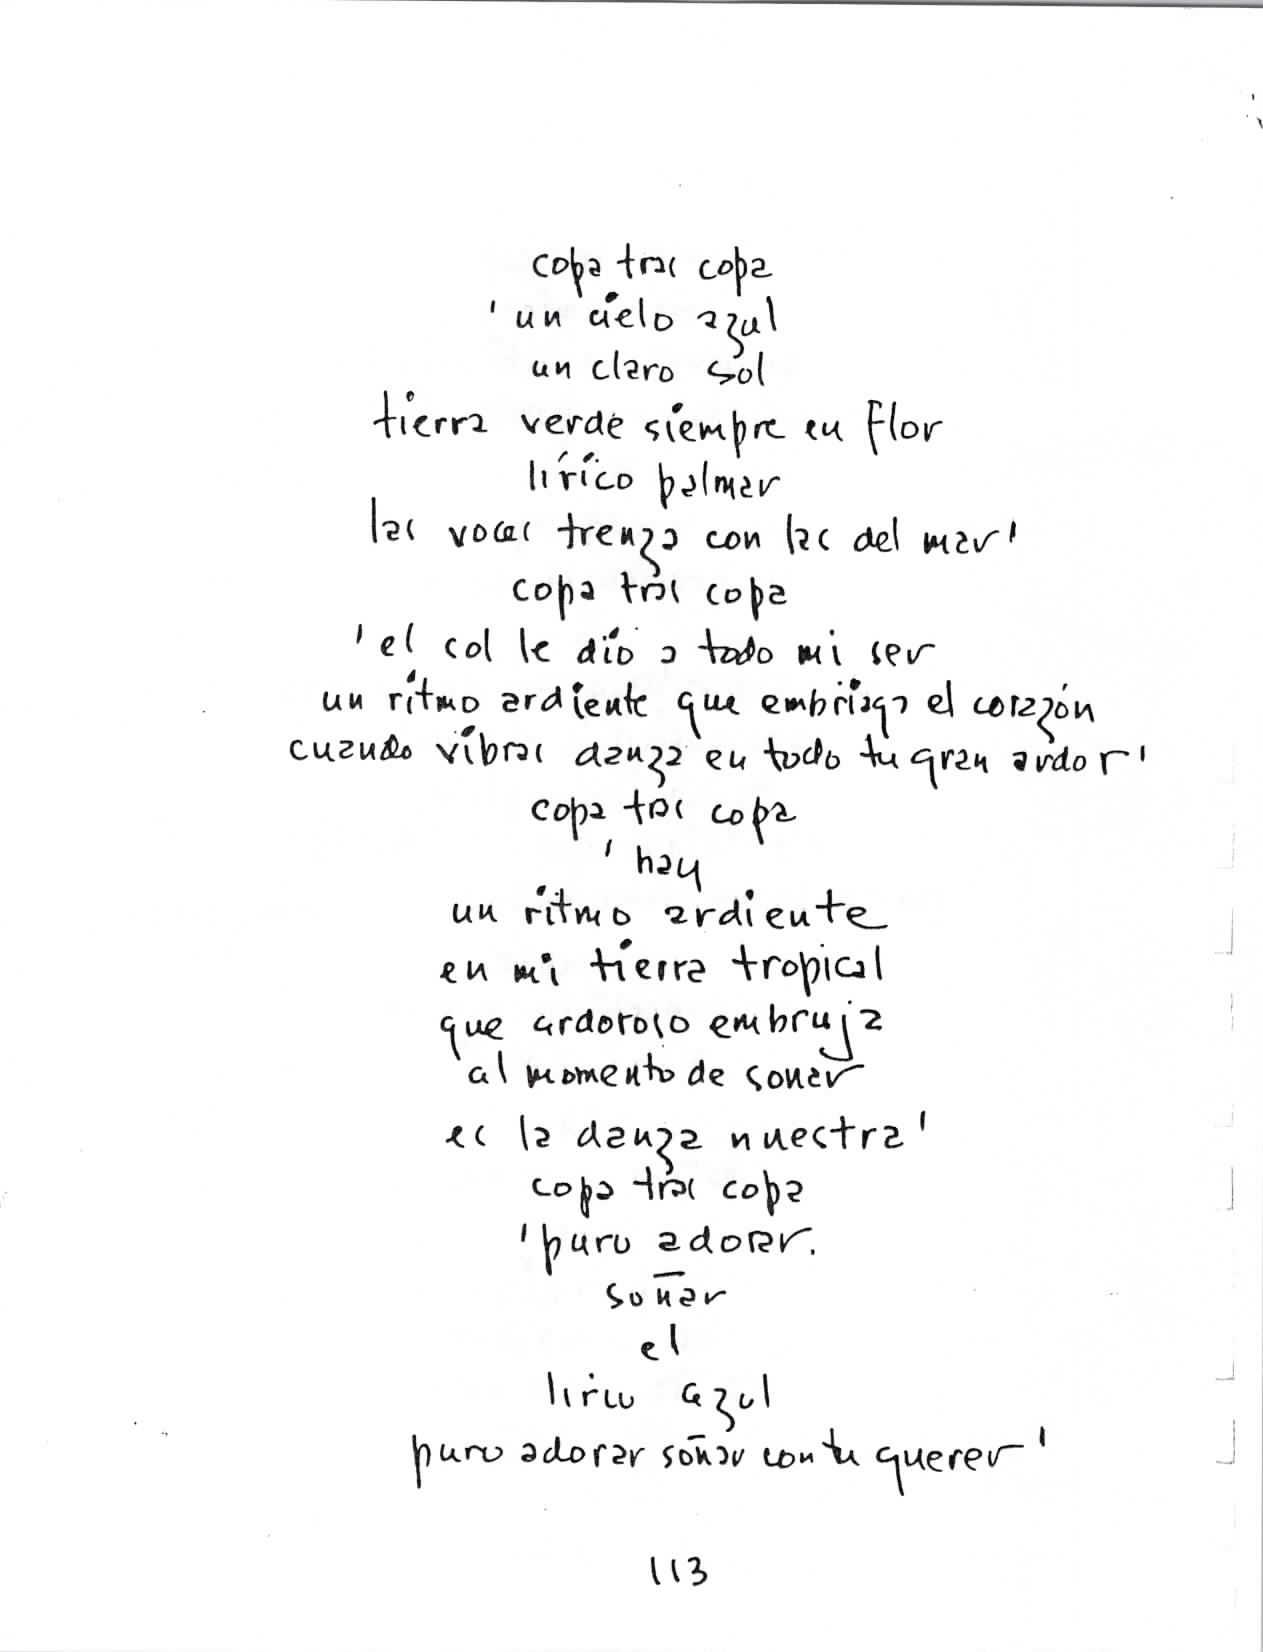 copa tras copa
'un cielo azul
un claro sol
tierra verde siempre en flor
lírico palmar
las voces trenza con las del mar'
copa tras copa
'el sol le dió a todo mi ser
un ritmo ardiente que embriaga el corazón
cuando vibras danza en todo tu gran ardor'
copa tras copa
'hay
un ritmo ardiente
en mi tierra tropical
que ardoroso embruja
al momento de sonar
es la danza nuestra'
copa tras copa
'puro adorar.
soñar
el
lirio azul
puro adorar soñar con tu querer'
113